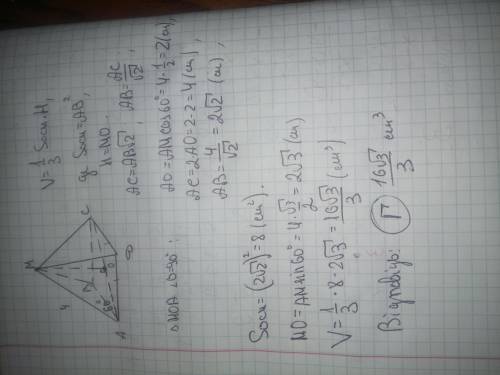 V=1/3 Sосн·H,
де Sосн=AB²,
H=MO.
AC=AB√2, AB=AC/√2,
△MOA ∠O=90°:
AO=AM cos60°=4·1/2=2(см),
AC=2AO=2·2=4(см),
AB=4/√2=2√2 (см),
Sосн=(2√2)²=8(см²).
MO=AM sin60°=4·√3/2=2√3 (см)
V=1/3·8·2√3=16√3/3 (см³)
Відповідь: Г 16√3/3 см³
M
4
60°
A
B
C
D
O